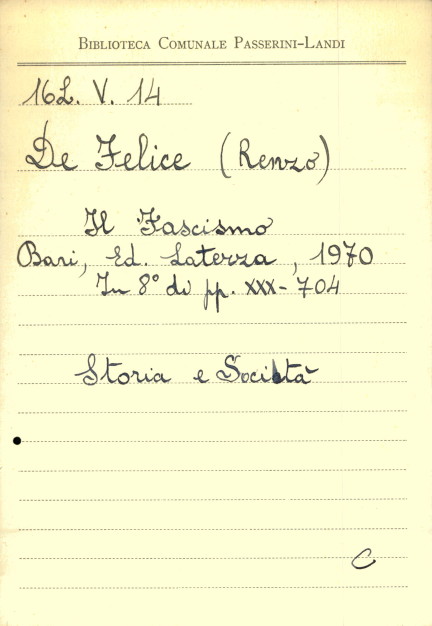 BIBLIOTECA COMUNALE PASSERINI-LANDI
16L. V. 14
De Felice (Renzo)
Il Fascismo
Bari, Ed. Laterza, 1970
In 8° di pp. XXX-704
Storia e Società
C